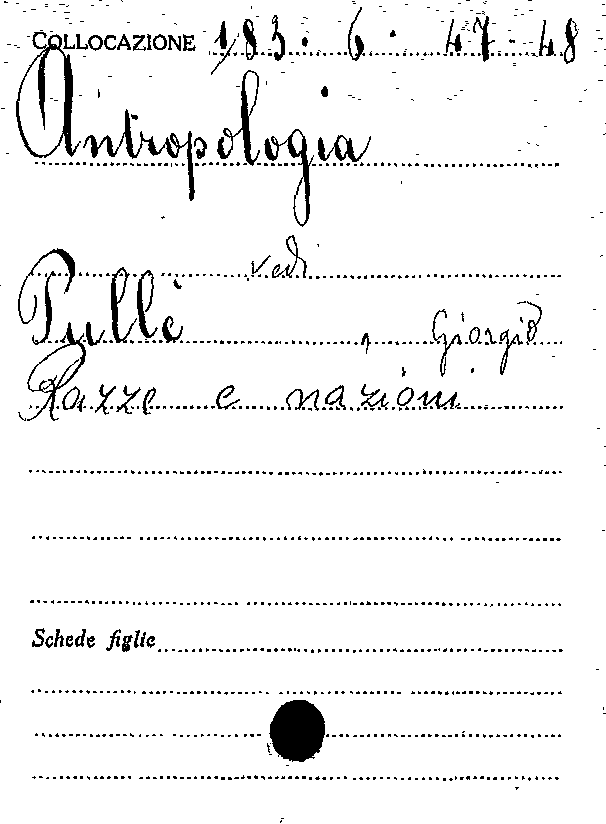 COLLOCAZIONE 183. 6. 47-48
Antropologia
vedi
Pullè, Giorgio
Razze e nazioni.
Schede figlie